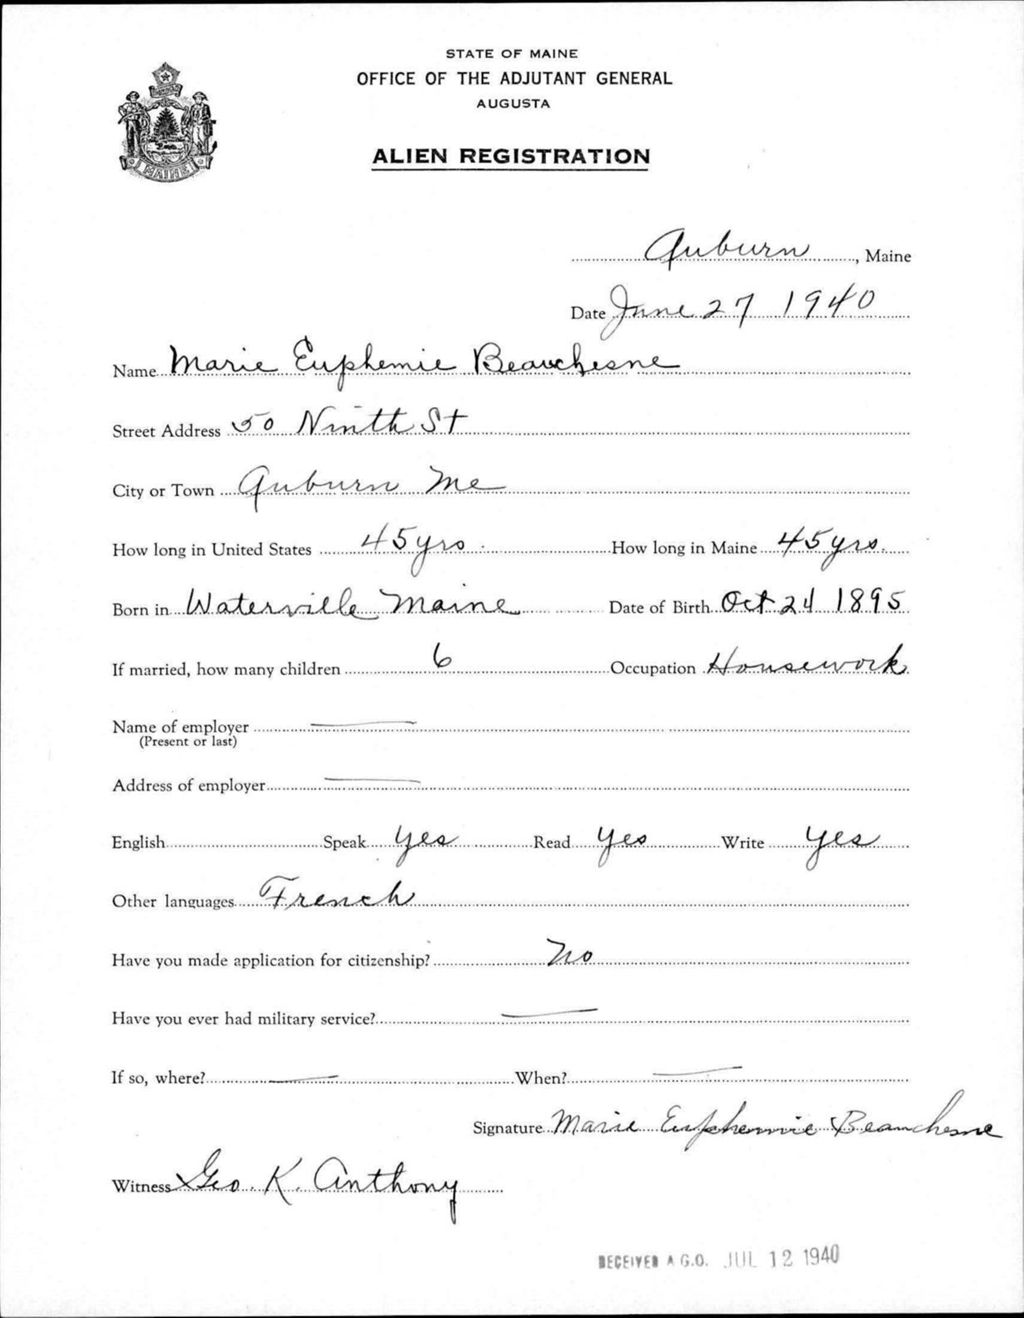 STATE OF MAINE
OFFICE OF THE ADJUTANT GENERAL
AUGUSTA
ALIEN REGISTRATION
MAINE
Auburn, Maine
Date June 27 1940
Name Marie Euphemie Beauchesne
Street Address 50 Ninth St
City or Town Auburn Me
How long in United States 45 yrs. How long in Maine 45 yrs.
Born in Waterville Maine Date of Birth Oct 24 1895
If married, how many children 6 Occupation Housework
Name of employer
(Present or last)
Address of employer
English Speak Yes Read Yes Write Yes
Other languages French
Have you made application for citizenship? No
Have you ever had military service?
If so, where? When?
Signature Marie Euphemie Beauchesne
Witness Geo. K. Anthony
RECEIVED A.G.O. JUL 12 1940